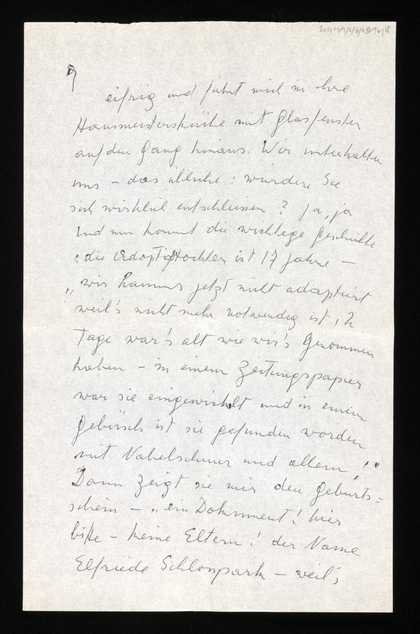 9
eifrig und führt mich in ihre
Hausmeisterküche mit Glasfenster
auf den Gang hinaus. Wir unterhalten
uns – das übliche: würden Sie
sich wirklich entschliessen? Ja, ja
Und nun kommt die wichtige Geschichte
: die Adoptivtochter ist 17 Jahre –
„wir haben's jetzt nicht adoptiert
weil's nicht mehr notwendig ist, 2
Tage war's alt wie wir's genommen
haben – in einem Zeitungspapier
war sie eingewickelt und in einem
Gebüsch ist sie gefunden worden
mit Nabelschnur und allem!"
Dann zeigt sie mir den Geburts=
schein – „ein Dokument! hier
bitte – keine Eltern! der Name
Elfriede Schlosspark – weil's